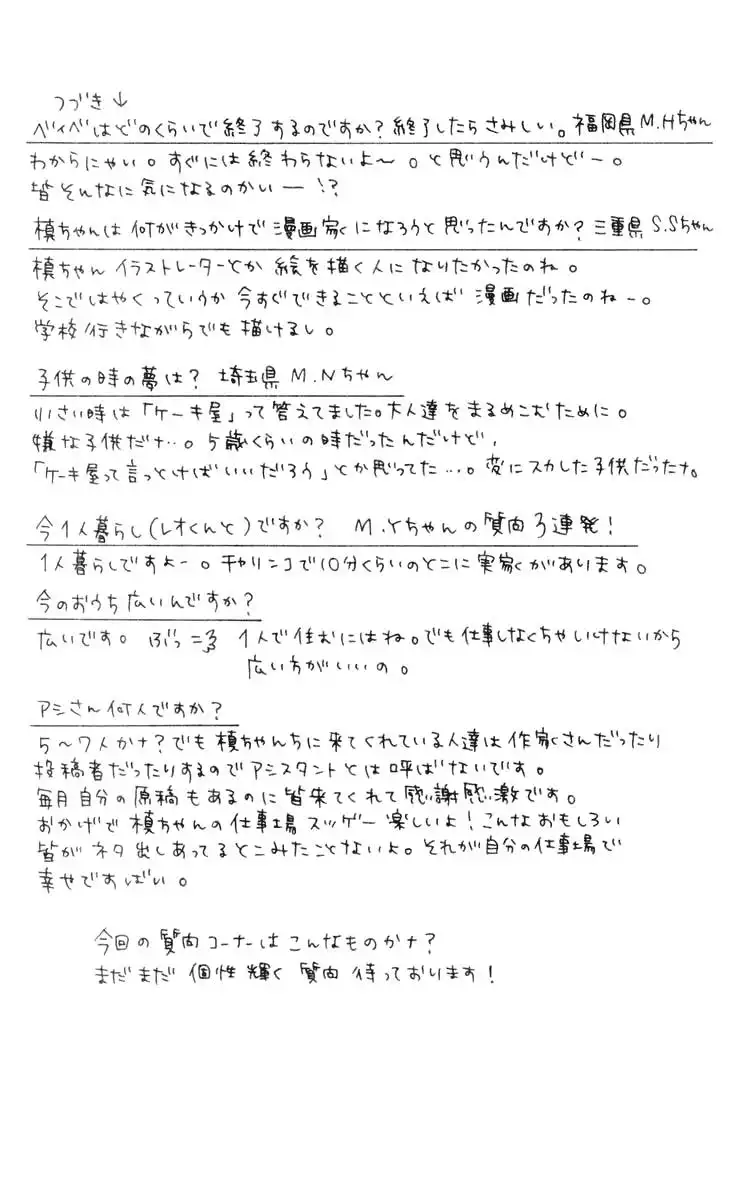 つづき↓
ベイベはどのくらいで終了するのですか？終了したらさみしい。福岡県M.Hちゃん
わからにゃい。すぐには終わらないよ〜。と思うんだけどー。
皆そんなに気になるのかいー!?
槙ちゃんは何がきっかけで漫画家になろうと思ったんですか？三重県S.Sちゃん
槙ちゃんイラストレーターとか絵を描く人になりたかったのね。
そこではやくっていうか今すぐできることといえば漫画だったのねー。
学校行きながらでも描けるし。
子供の時の夢は？埼玉県M.Nちゃん
小さい時は「ケーキ屋」って答えてました。大人達をまるめこむために。
嫌な子供だナ…。5歳くらいの時だったんだけど、
「ケーキ屋って言っとけばいいだろう」とか思ってた…。変にスカした子供だったナ。
今1人暮らし(レオくんと)ですか？M.Yちゃんの質問3連発！
1人暮らしですよー。チャリンコで10分くらいのとこに実家があります。
今のおうち広いんですか？
広いです。ぶっ=3 1人で住むにはね。でも仕事しなくちゃいけないから
広い方がいいの。
アシさん何人ですか？
5〜7人かナ？でも槙ちゃんちに来てくれている人達は作家さんだったり
投稿者だったりするのでアシスタントとは呼ばないです。
毎月自分の原稿もあるのに皆来てくれて感謝感激です。
おかげで槙ちゃんの仕事場スッゲー楽しいよ！こんなおもしろい
皆がネタ出しあってるとこみたことないよ。それが自分の仕事場で
幸せですばい。
今回の質問コーナーはこんなものかナ？
まだまだ個性輝く質問待っております！